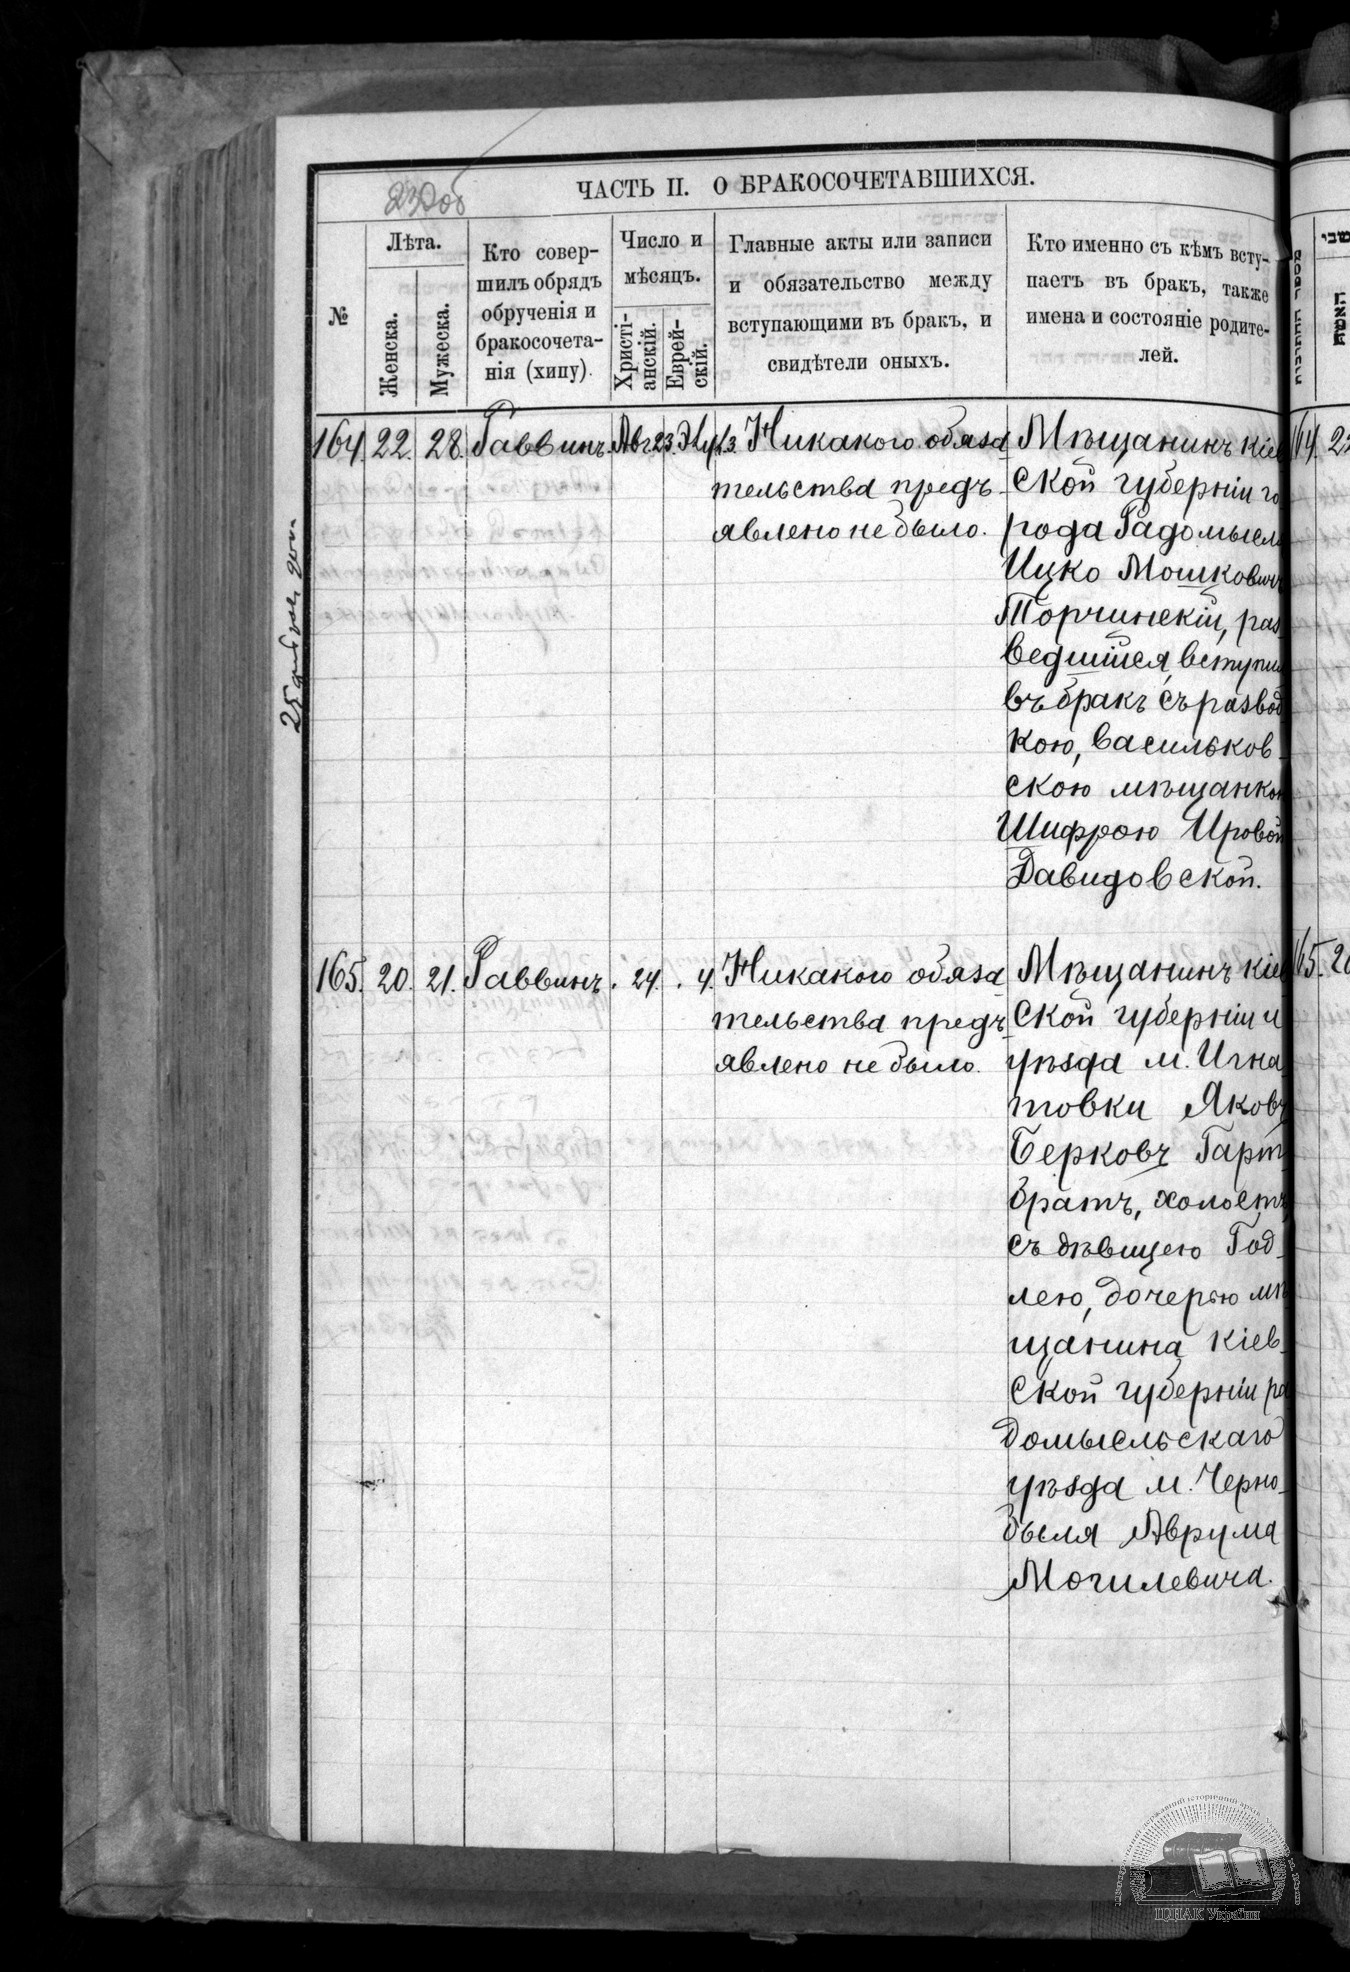 ЧАСТЬ II. О БРАКОСОЧЕТАВШИХСЯ.
№
Лѣта.
Женска.
Мужеска.
Кто совер-
шилъ обрядъ
обрученія и
бракосочета-
нія (хипу).
Число и
мѣсяцъ.
Христі-
анскій.
Еврей-
скій.
Главные акты или записи
и обязательство между
вступающими въ бракъ, и
свидѣтели оныхъ.
Кто именно съ кѣмъ всту-
паетъ въ бракъ, также
имена и состояніе родите-
лей.
164. 22. 28. Раввинъ. Авг. 23. 3. Никакого обяза
тельства предъ
явлено не было.
Мѣщанинъ кіев
ской губерніи го
рода Радомысля
Ицко Мошковичъ
Торчинскій, раз
ведшійся, вступил
въ бракъ съ развод
кою, васильков
скою мѣщанкою
Шифрою Ировой
Давидовской.
165. 20. 21. Раввинъ. 24. 4. Никакого обяза
тельства предъ
явлено не было.
Мѣщанинъ кіев
ской губерніи и
уѣзда м. Игна
товки Яковъ
Берковъ Гарт
братъ, холостъ,
съ дѣвицею Год
лею, дочерью мѣ
щанина кіев
ской губерніи ра
домысльскаго
уѣзда м. Черно
быля Аврума
Могилевича.
164. 22
165. 20
ЦДІАК України